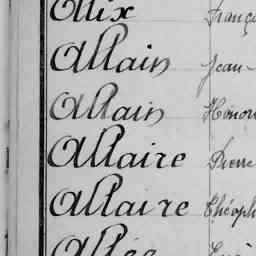 Allix
Allain Jean-
Allain Honor
Allaire Pierre
Allaire Théoph
Allée